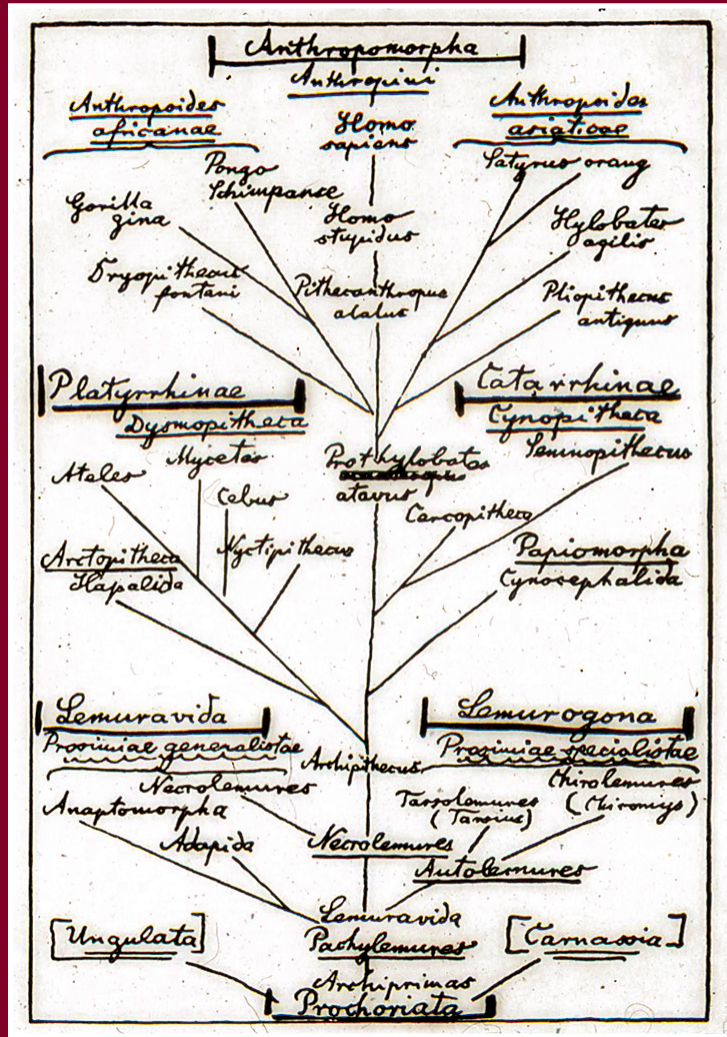 Anthropomorpha
Anthropini
Anthropoides
africanae
Homo
sapiens
Anthropoides
asiaticae
Pongo
Schimpanse
Satyrus orang
Gorilla
gina
Homo
stupidus
Hylobates
agilis
Dryopithecus
fontani
Pithecanthropus
alalus
Pliopithecus
antiquus
Platyrrhinae
Dysmopitheca
Catarrhinae
Cynopitheca
Mycetes
Prothylobates
atavus
Semnopithecus
Ateles
Cebus
Cercopitheca
Nyctipithecus
Arctopitheca
Hapalida
Papiomorpha
Cynocephalida
Lemuravida
Prosimiae generalistae
Lemurogona
Prosimiae specialistae
Archipithecus
Necrolemures
Chirolemures
(Chiromys)
Anaptomorpha
Tarsolemures
(Tarsius)
Adapida
Necrolemures
Autolemures
Lemuravida
Pachylemures
[Ungulata]
[Carnassia]
Archiprimas
Prochoriata